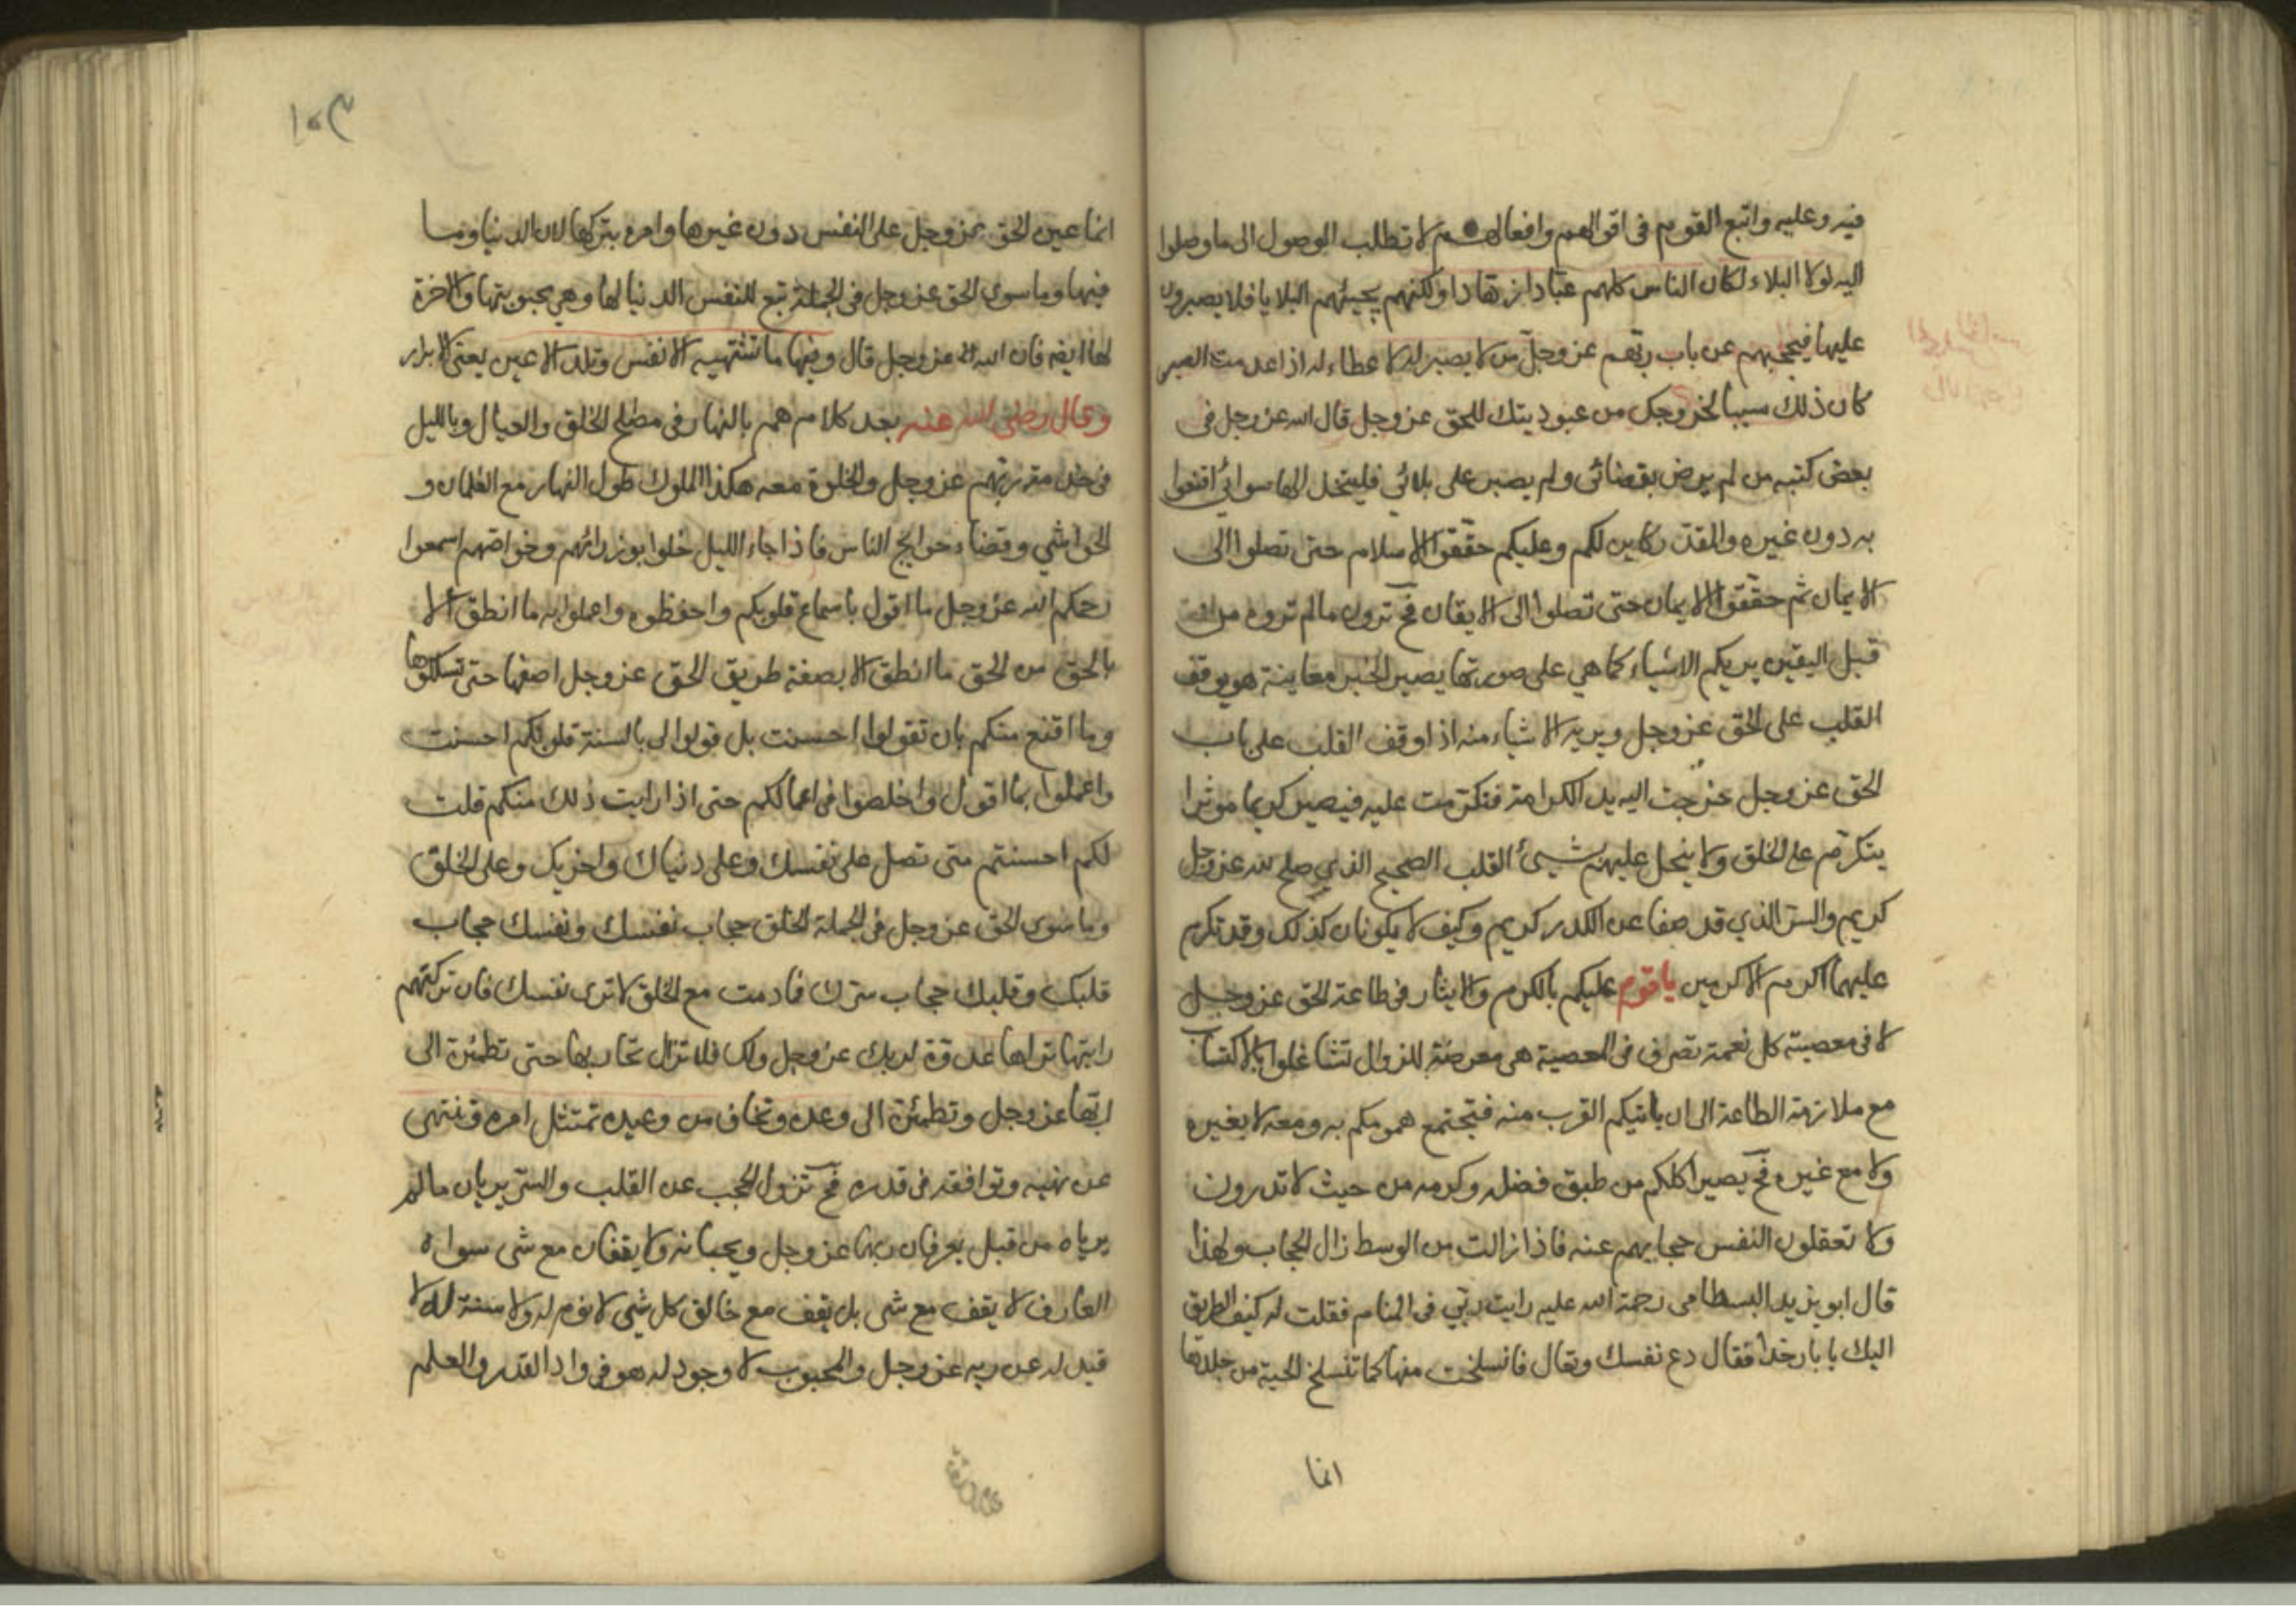 فيه وعليه واتبع القوم في اقوالهم وافعالهم لا تطلب الوصول الى ما وصلوا
اليه لولا البلاء لكان الناس كلهم عبادا زهادا ولكنهم يجيئهم البلايا فلا يصبرون
عليها فيحجبهم عن باب ربهم عز وجل من لا يصبر له لا عطاء له اذا عدمت الصبر
كان ذلك سببا لخروجك من عبوديتك للحق عز وجل قال الله عز وجل في
بعض كتبه من لم يرض بقضائي ولم يصبر على بلائي فليتخذ الها سوائي اقنعوا
به دون غيره والمقدر كاين لكم وعليكم حققوا الاسلام حتى تصلوا الى
الايمان ثم حققوا الايمان حتى تصلوا الى الايقان فح ترون ما لم تروه من
قبل اليقين يريكم الاشياء كما هي على صورتها يصير الخبر معاينة هو يوقف
القلب على الحق عز وجل ويريه الاشياء منه اذا وقف القلب على باب
الحق عز وجل خرجت اليه يد الكرامة فتكرمت عليه فيصير كريما موثرا
يتكرم على الخلق ولا يبخل عليهم بشيئ القلب الصحيح الذي صلح لله عز وجل
كريم والسر الذي قد صفا عن الكدر كريم وكيف لا يكونان كذلك وقد تكرم
عليهما اكرم الاكرمين يا قوم عليكم بالكرم والايثار في طاعة الحق عز وجل
لا في معصيته كل نعمة تصرف في المعصية هي معرضة للزوال تشاغلوا بالاكتساب
مع ملازمة الطاعة الى ان ياتيكم القرب منه فتجتمع همومكم به ومعه لا بغيره
ولا مع غيره فح يصير اكلكم من طبق فضله وكرمه من حيث لا تدرون
ولا تعقلون النفس حجابهم عنه فاذا زالت من الوسط زال الحجاب ولهذا
قال ابو يزيد البسطامي رحمة الله عليه رايت ربي في المنام فقلت له كيف الطريق
اليك يا بارخدا فقال دع نفسك وتعال فانسلخت منها كما تنسلخ الحية من جلدها
انما
١٠٣
انما عين الحق عز وجل على النفس دون غيرها وامره بتركها لان الدنيا وما
فيها وما سوى الحق عز وجل في الجملة تبع للنفس الدنيا لها وهي محبوبتها والاخرة
لها ايضا فان الله عز وجل قال وفيها ما تشتهيه الانفس وتلذ الاعين يعني الابرار
وقال رضي الله عنه بعد كلام هم بالنهار في مصلح الخلق والعيال وبالليل
في خدمة ربهم عز وجل والخلوة معه هكذا الملوك طول النهار مع الغلمان و
الحواشي وقضاء حوايج الناس فاذا جاء الليل خلوا بوزرائهم وخواصهم اسمعوا
رحمكم الله عز وجل ما اقول باسماع قلوبكم واحفظوه واعملوا به ما انطق الا
بالحق من الحق ما انطق الا بصفة طريق الحق عز وجل اصفها حتى تسلكوها
وما اقنع منكم بان تقولوا احسنت بل قولوا لي بالسنة قلوبكم احسنت
واعملوا بما اقول واخلصوا في اعمالكم حتى اذا رايت ذلك منكم قلت
لكم احسنتم متى تصل على نفسك وعلى دنياك واخريك وعلى الخلق
وما سوى الحق عز وجل في الجملة الخلق حجاب نفسك ونفسك حجاب
قلبك وقلبك حجاب سرك فما دمت مع الخلق لا ترى نفسك فان تركتهم
رايتها تراها عدوة لربك عز وجل ولك فلا تزال تحاربها حتى تطمئن الى
ربها عز وجل وتطمئن الى وعده وتخاف من وعيده تمتثل امره وتنتهي
عن نهيه وتوافقه في قدره فح تزول الحجب عن القلب والسر يريان ما لم
يرياه من قبل يعرفان ربهما عز وجل ويحبانه ولا يقفان مع شي سواه
العارف لا يقف مع شي بل يقف مع خالق كل شي لا نوم له ولا سنة له لا
قيد له عن ربه عز وجل والمحبوب لا وجود له هو في واد القدر والعلم